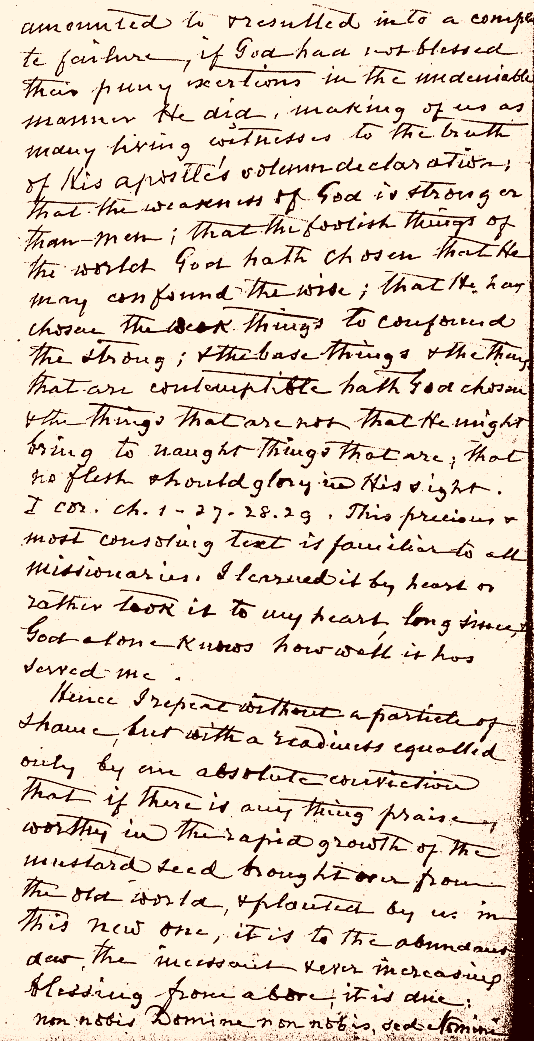 amounted to & resulted into a comple
te failure, if God had not blessed
their puny exertions in the undeniable
manner He did, making of us as
many living witnesses to the truth
of His apostle's solemn declaration;
that the weakness of God is stronger
than men; that the foolish things of
the world God hath chosen that He
may confound the wise; that He has
chosen the weak things to confound
the strong; & the base things & the things
that are contemptible hath God chosen
& the things that are not that He might
bring to naught things that are; that
no flesh should glory in His sight.
I cor. ch. 1 - 27 - 28. 29. This precious &
most consoling text is familiar to all
missionaries. I learned it by heart or
rather took it to my heart, long since, &
God alone knows how well it has
served me.
Hence I repeat without a particle of
shame, but with a readiness equalled
only by an absolute conviction
that if there is any thing praise,
worthy in the rapid growth of the
mustard seed brought over from
the old world, & planted by us in
this new one, it is to the abundant
dew, the incessant & ever increasing
blessing from above, it is due;
non nobis Domine non nobis, sed nomini